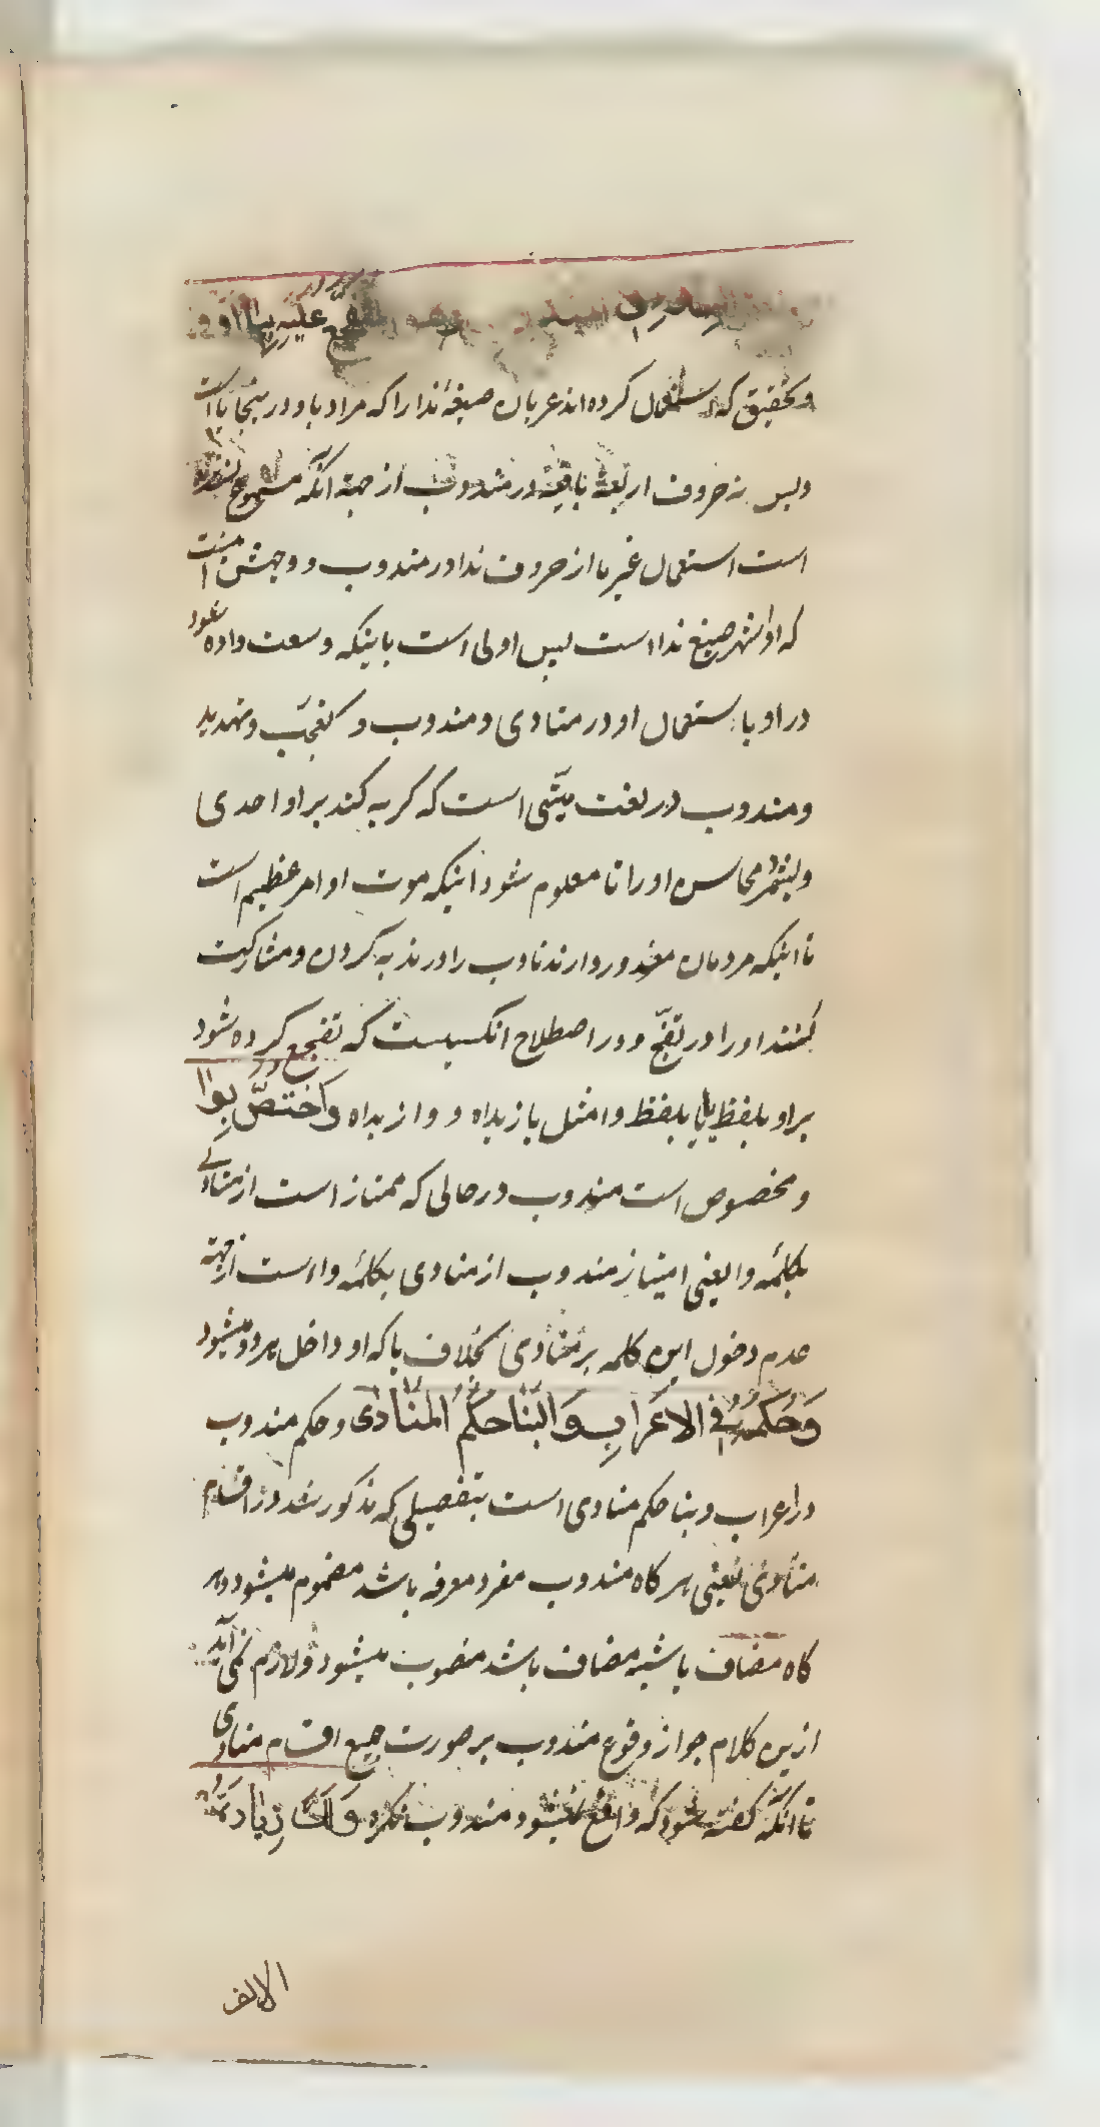 المتفجع علیه بیا او وا
و تحقیق که استعمال کرده‌اند عربان صیغهٔ ندا را که مراد باو در اینجا یا است
و بس نه حروف اربعهٔ باقیه در مندوب از جهة آنکه مسموع نشده
است استعمال غیر یا از حروف ندا در مندوب و وجهش اینست
که او اشهر صیغ ندا است پس اولی است باینکه وسعت داده شود
در او باستعمال او در منادی و مندوب و تعجب و تهدید
و مندوب در لغت میتی است که گریه کند بر او احدی
و بشمرد محاسن او را تا معلوم شود اینکه موت او امر عظیم است
تا اینکه مردمان معذور دارند نادب را در ندبه کردن و مشارکت
کنند او را در تفجع و در اصطلاح انکسیست که تفجع کرده شود
بر او بلفظ یا یا بلفظ وا مثل یا زیداه و وا زیداه وَاخْتَصَّ بِوا
و مخصوص است مندوب در حالی که ممتاز است از منادی
بکلمهٔ وا یعنی امتیاز مندوب از منادی بکلمهٔ وا است از جهة
عدم دخول این کلمه بر منادی بخلاف یا که او داخل هر دو میشود
وَحُکْمُهُ فِی الاِعْرَابِ وَالْبِنَا حُکْمُ الْمُنَادَی و حکم مندوب
در اعراب و بنا حکم منادی است بتفصیلی که مذکور شد در اقسام
منادی یعنی هر گاه مندوب مفرد معرفه باشد مضموم میشود و هر
گاه مضاف یا شبه مضاف باشد منصوب میشود و لازم نمی‌آید
ازین کلام جواز وقوع مندوب بر صورت جمیع اقسام منادی
تا آنکه گفته شود که واقع نمیشود مندوب نکره وَلَكَ زِیَادَةُ
الالف